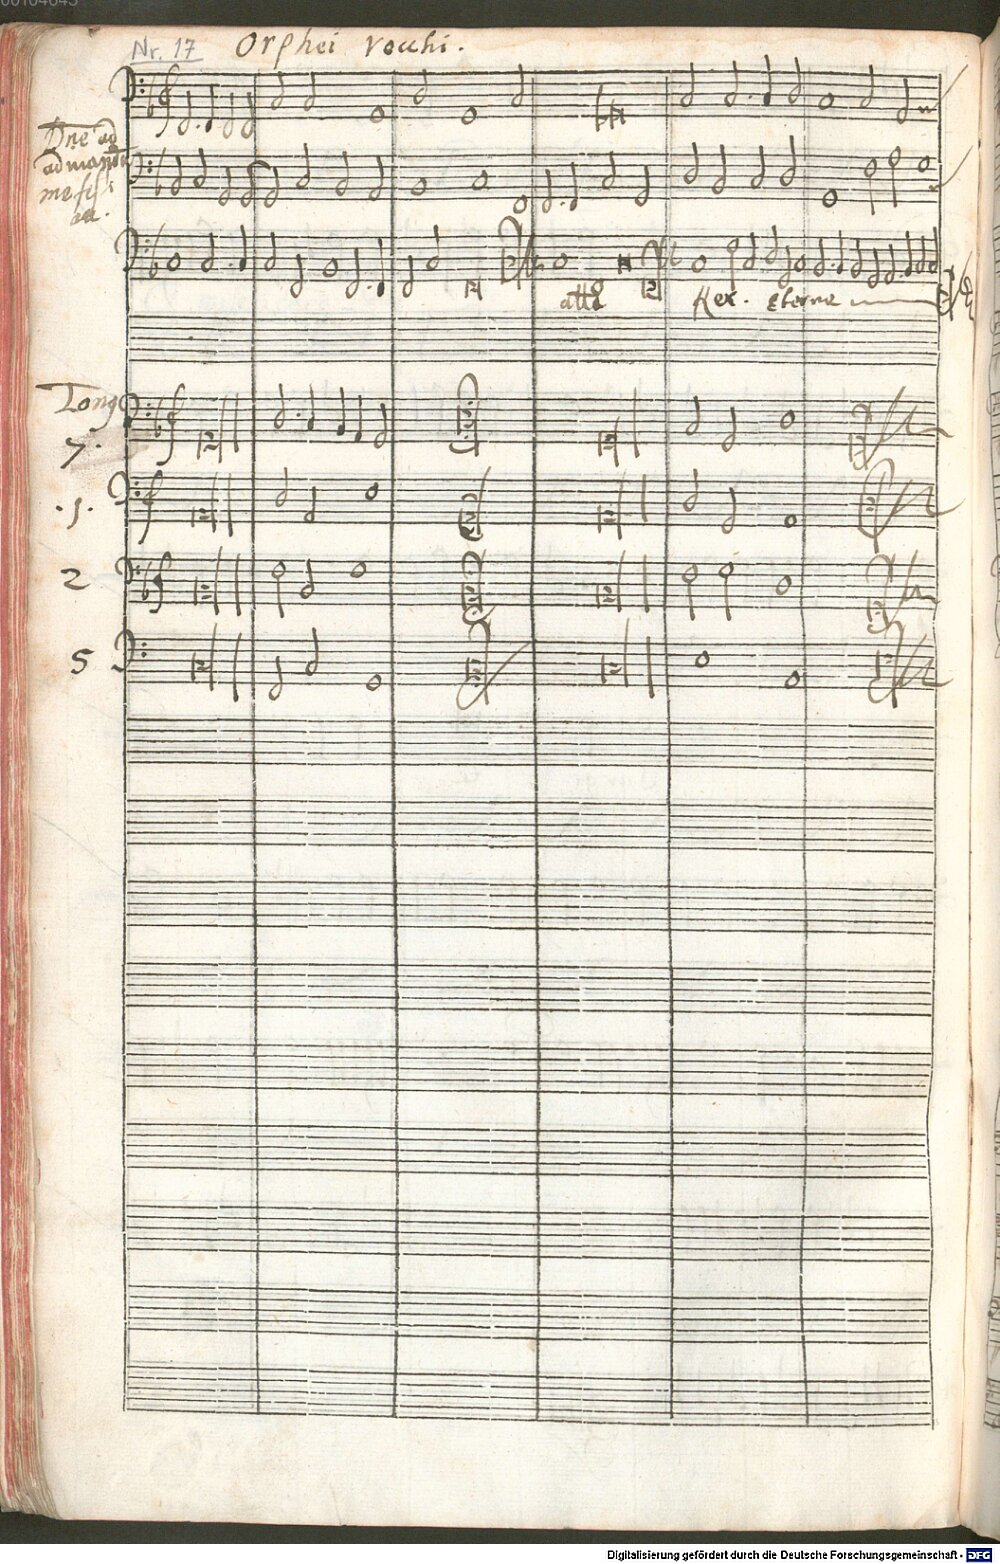 Nr. 17 Orphei vecchi.
Dne ad
me
Rex. eterne
Tong
7.
.1.
2
5
Digitalisierung gefördert durch die Deutsche Forschungsgemeinschaft - DFG